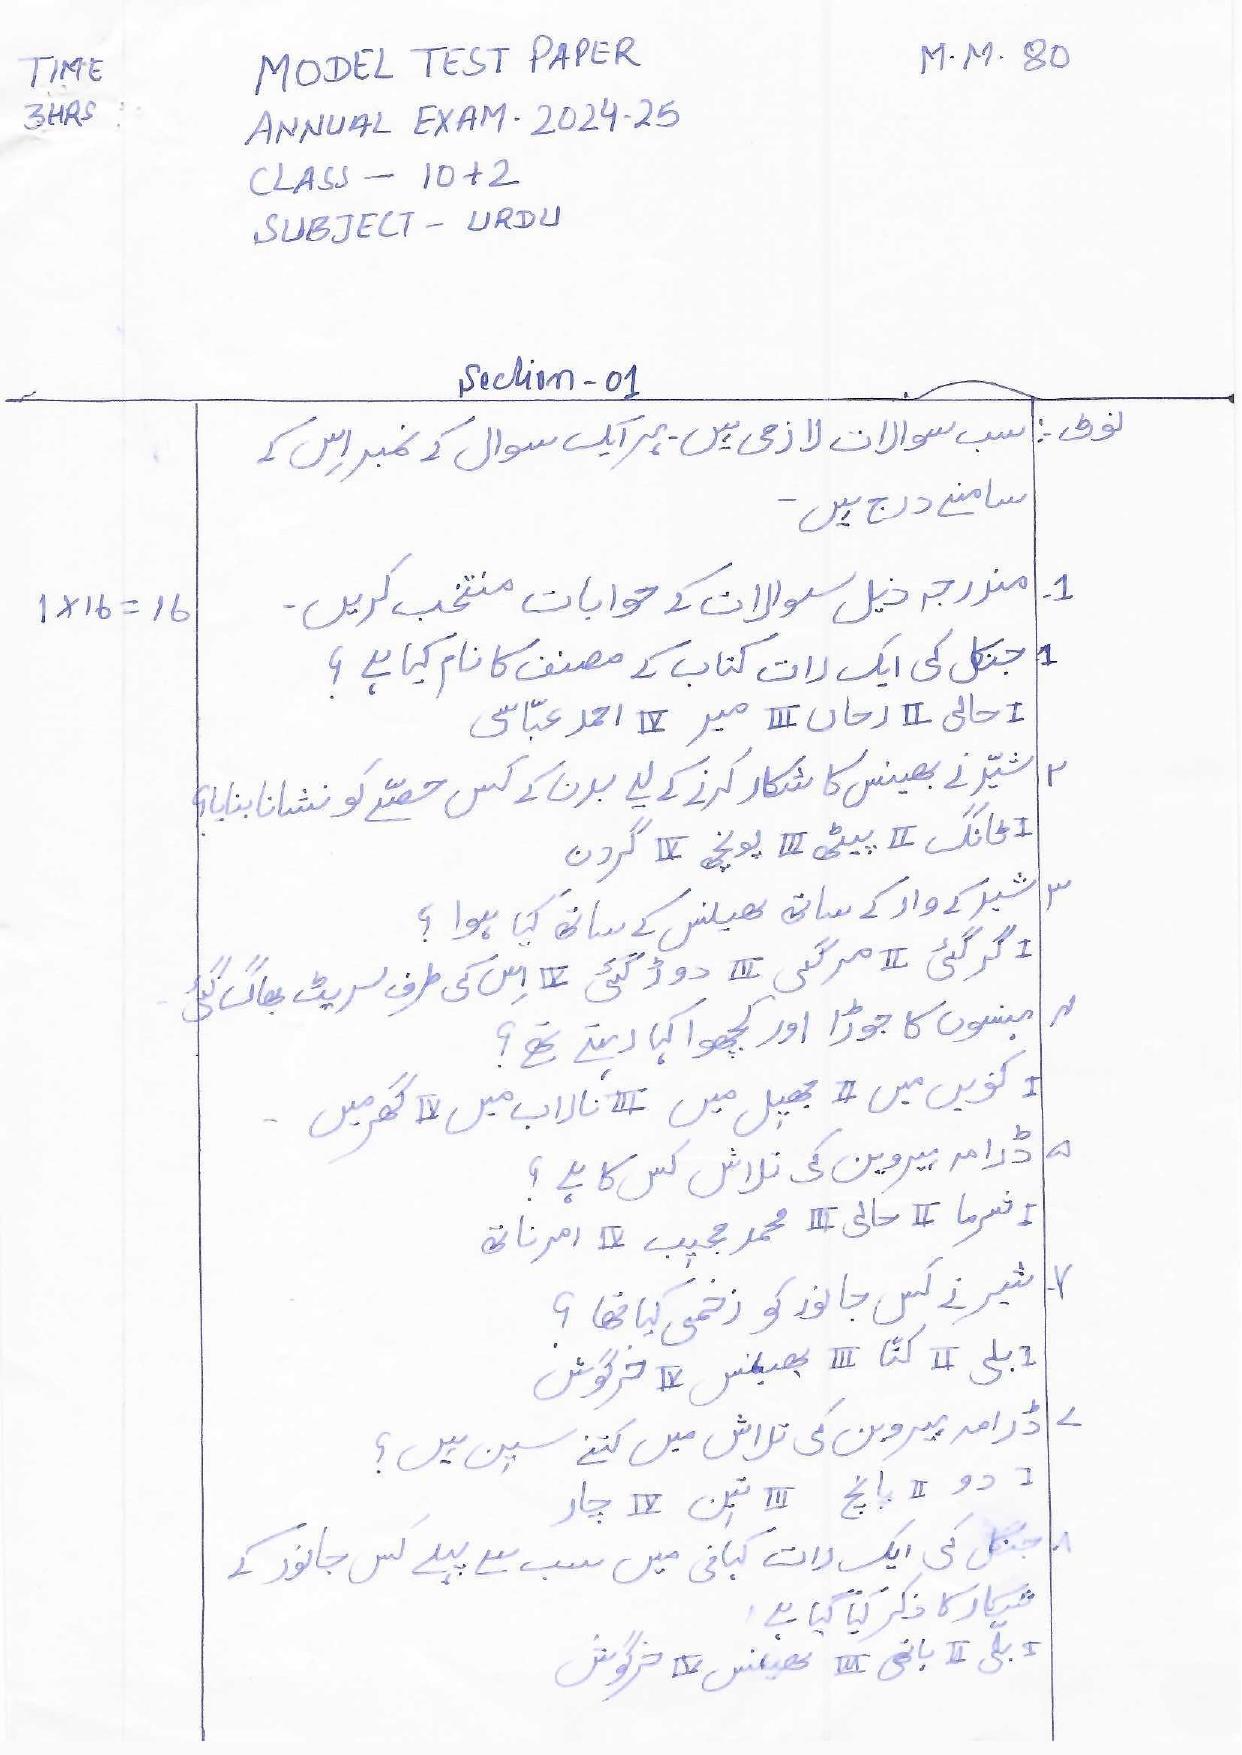 TIME MODEL TEST PAPER M.M. 80
3HRS ANNUAL EXAM. 2024-25
CLASS - 10+2
SUBJECT - URDU
Section-01
نوٹ: سب سوالات لازمی ہیں۔ ہر ایک سوال کے نمبر اِس کے
سامنے درج ہیں۔
1. مندرجہ ذیل سوالات کے جوابات منتخب کریں۔ 1x16=16
1 جنگل کی ایک رات کتاب کے مصنف کا نام کیا ہے؟
I حالی II رحمان III میر IV احمد عبّاسی
۲ شیر نے بھینس کا شکار کرنے کے لیے بدن کے کس حصّے کو نشانا بنایا؟
I ٹانگ II پیٹھ III پونچھ IV گردن
۳ شیر کے وار کے ساتھ بھینس کے ساتھ کیا ہوا؟
I گر گئی II مر گئی III دوڑ گئی IV اِس کی طرف سرپٹ بھاگ گئی۔
۴ ہنسوں کا جوڑا اور کچھوا کہا رہتے تھے؟
I کنویں میں II جھیل میں III تالاب میں IV گھر میں۔
۵ ڈرامہ ہیروین کی تلاش کس کا ہے؟
I II حالی III محمد مجیب IV امرناتھ
۶ شیر نے کس جانور کو زخمی کیا تھا؟
I بلی II کتّا III بھینس IV خرگوش
۷ ڈرامہ ہیروین کی تلاش میں کتنے سین ہیں؟
I دو II پانچ III تین IV چار
۸ جنگل کی ایک رات کہانی میں سب سے پہلے کس جانور کے
شکار کا ذکر کیا گیا ہے
I بلّی II ہاتھی III بھینس IV خرگوش